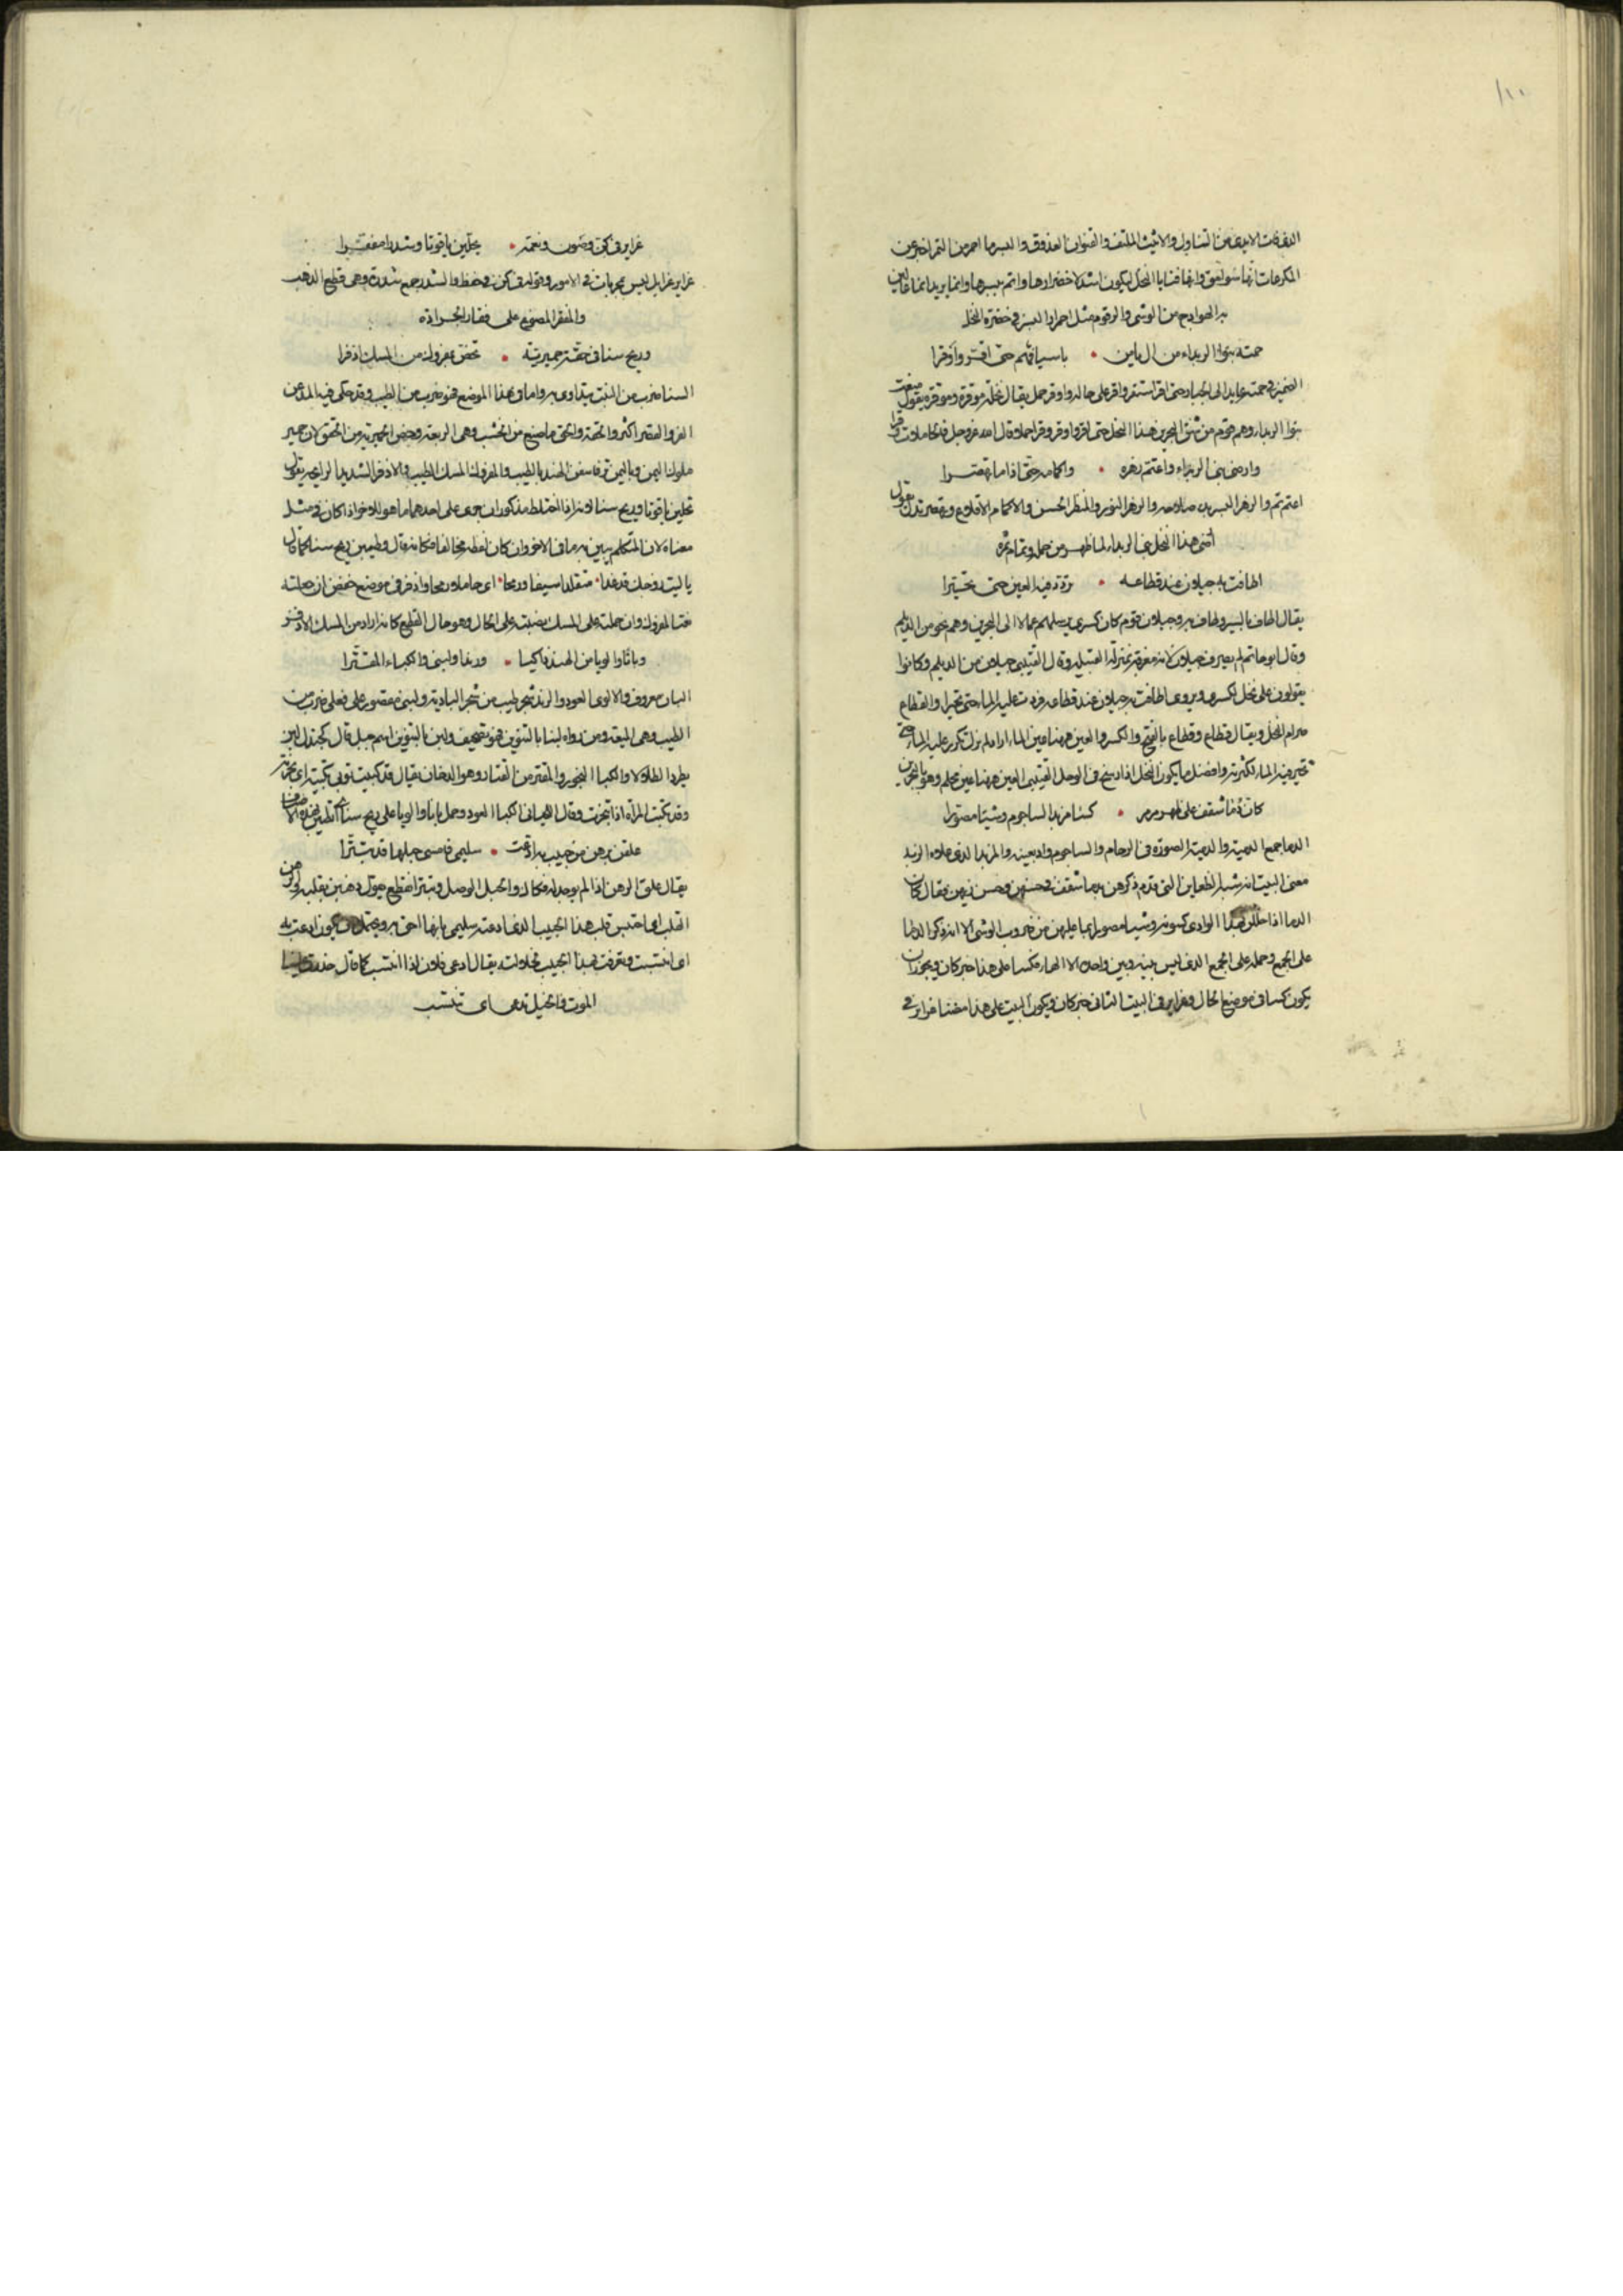 المكرعات انها سوابق وانها فتايا النخل ليكون اشد لاخضرارها واتم لبسرها وانما يريد انما عالين
به الهوادج من الوشى والرقوم مثل احمرار البسر فى خضرة النخل
حمته بنوا الربداء من ال يامن • باسيافهم حتى اقر واوقرا
الضمير فى حمته عايد الى الجبار وحتى اقر استقر واقر على حاله واوقر حمل يقال نخلة موقرة وموقره يقول منعت
بنوا الربداء وهم قوم من البحرين هذا النخل حتى اقروا وقر وقرا حملا وقال الله عز وجل فالحاملات وقرا
وارضى بنى الربداء واعتم زهوه • واكمامه حتى اذا ما تهصرا
اعتم تم والزهو البسر حين صلاحه والزهر النور والمنظر الحسن والاكمام الاقلاع وتهصر تدلى يقول
ارضى هذا النخل بنى الربداء لما ظهر من حمله وتمام ثمره
اطافت به جيلان عند قطاعه • تردد فيه العين حتى تحيرا
يقال اطاف بالشى وطاف به وجيلان قوم كان كسرى يرسلهم عمالا الى البحرين وهم نحو من الديلم
وقال ابو حاتم لم يصرف جيلان لانه معرفة بمنزلة القبيلة وقال القتيبى جيلان من الديلم وكانوا
يقولون على نخل لكسرى ويروى اطافت به جيلان عند قطاعه وردت عليه الماء حتى تحيرا والقطاع
صرام النخل ويقال قطاع وقطاع بالفتح والكسر والعين ههنا عين الماء اراد لم تزل تكرر عليه الماء حتى
تحير فيه الماء لكثرته وافضل ما يكون النخل اذا رسخ فى الوحل القتيبى العين ههنا عين محلم وهو بالبحرين
كان دمى سقف على ظهر مرمر • كسا مزبد الساجوم وشيا مصورا
الدما جمع الدمية والدمية الصورة فى الرخام والساجوم واد بعينه والمزبد الذى علاه الزبد
معنى البيت انه شبه الظعاين التى قدم ذكرهن بدما سقف فى حسنهن وحسن زيهن فقال كان
الدما اذا حللن بهذا الوادى كسونه وشيا مصورا بما عليهن من ضروب الوشى الا انه ذكر الدما
على الجمع وحمله على الجمع الذى ليس بينه وبين واحده الا الهاء فكسا على هذا خبر كان ويجوز ان
يكون كسا فى موضع الحال وغراير فى البيت الثانى خبر كان ويكون البيت على هذا مضمنا غراير فى
غراير فى كن وصون ونعمة • يحلين ياقوتا وشذرا مفقرا
غراير غوافل ليس بمجربات فى الامور وقوله فى كن فى حفظ والشذر جمع شذرة وهى قطع الذهب
والمفقر المصنوع على فقار الجرادة
وريح سنا فى حقة حميرية • تخص بمفروك من المسك اذفرا
السنا ضرب من النبت يتداوى به واما فى هذا الموضع فهو ضرب من الطيب وقد حكى فيه المد عن
الفرا والقصر اكثر والحقة والحق ما صنع من الخشب وهى الربعة وخص الحميرية من الحقق لان حمير
ملوك اليمن وباليمن ترفا سفن الهند بالطيب والمفروك المسك الطيب والاذفر الشديد الرايحة يقول
يحلين ياقوتا وريح سنا لانه اذا اختلط مذكوران جرى على احدهما ما هو للاخر اذا كان فى مثل
معناه لان المتكلم يبين به ما فى الاخر وان كان لفظه مخالفا فكانه قال وطيبن ريح سنا كما قال
يا ليت زوجك قد غدا • متقلدا سيفا ورمحا • اى حاملا رمحا واذفر فى موضع خفض ان جعلته
نعتا لمفروك وان حملته على المسك نصبته على الحال وهو حال القطع كانه اراد من المسك الاذفر
وبانا والويا من الهند ذاكيا • ورندا ولبنى والكباء المقترا
البان معروف والالوى العود والرند شجر طيب من شجر البادية ولبنى مقصور على فعلى ضرب من
الطيب وهى الميعة ومن رواه لبنا بالتنوين فهو تصحيف ولبن بالتنوين اسم جبل قال كجندل لبن
يطرد الظلالا والكبا البخور والمقتر من القتار وهو الدخان يقال قد كبيت ثوبى تكبية اى بخرته
وقد تكبت المراة اذا تبخرت وقال اللحيانى الكبا العود وحمل بانا والويا على ريح سنا
علقن برهن من حبيب به ادعت • سليمى فامسى حبلها قد تبترا
يقال غلق الرهن اذا لم يوجد له فكاك والحبل الوصل وتبتر انقطع يقول ذهبن بقلبه
القلب اى احتبس قلب هذا الحبيب الذى ادعته سليمى بانها احق به ويحتمل ان يكون ادعت به
اى انتسبت وتعرفت بهذا الحبيب محاولته يقال ادعى فلان اذا انتسب كما قال
الموت والخيل تدعى اى تنتسب